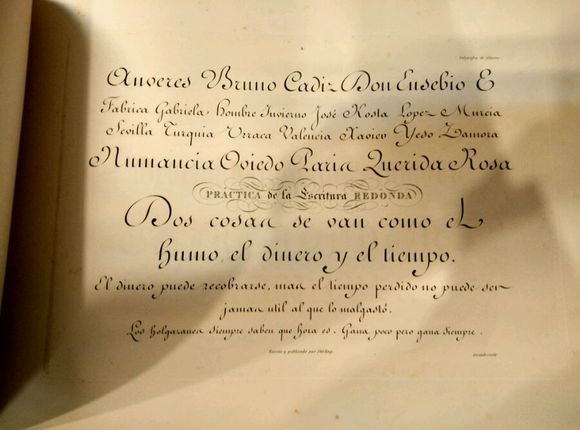 Anveres Bruno Cadiz Don Eusebio E
Fabrica Gabriela Hombre Invierno José Kosta Lopez Murcia
Sevilla Turquia Urraca Valencia Xavier Yeso Zamora
Numancia Oviedo Paris Querida Rosa
PRÁCTICA de la Escritura REDONDA
Dos cosas se van como el
humo, el dinero y el tiempo.
El dinero puede recobrarse, mas el tiempo perdido no puede ser
jamas util al que lo malgastó.
Los holgazanes siempre saben que hora es. Gana poco pero gana siempre.
Escrito y publicado por